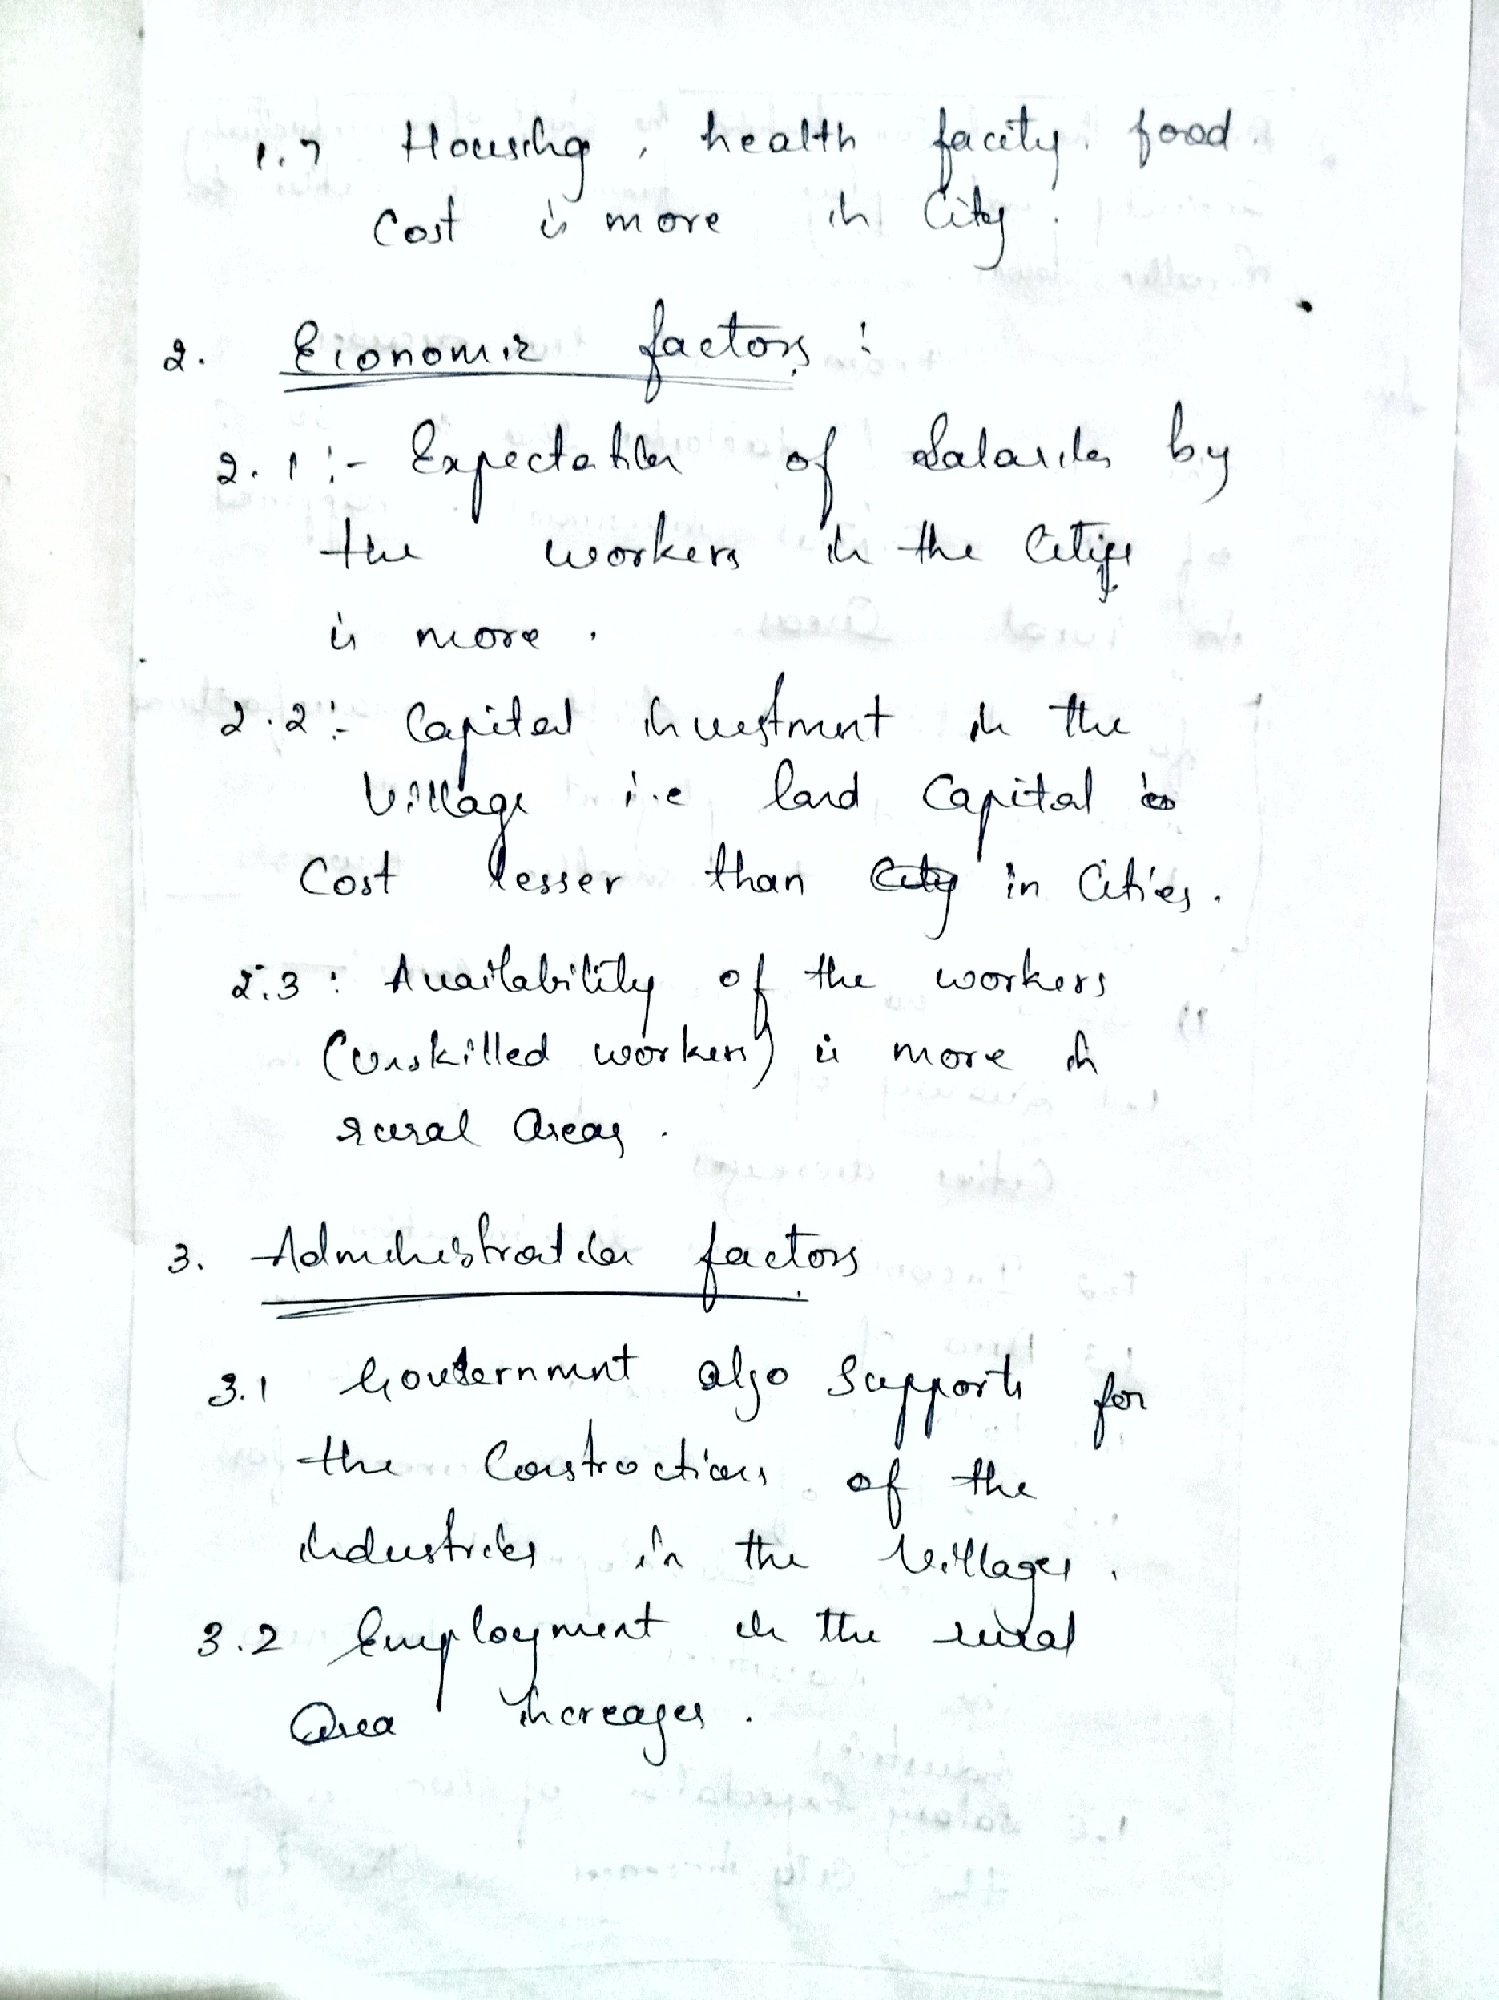 1.7 Housing, health facity, food
Cost is more in City.
2. Economic factors :
2.1 :- Expectation of Salaries by
the workers in the Cities
is more.
2.2 :- Capital investment in the
Village i.e land Capital
Cost lesser than City in Cities.
2.3 : Availability of the workers
(Unskilled workers) is more in
rural Areas.
3. Administration factors
3.1 Government also Supports for
the Constructions of the
industries in the Villages.
3.2 Employment in the rural
Area increases.